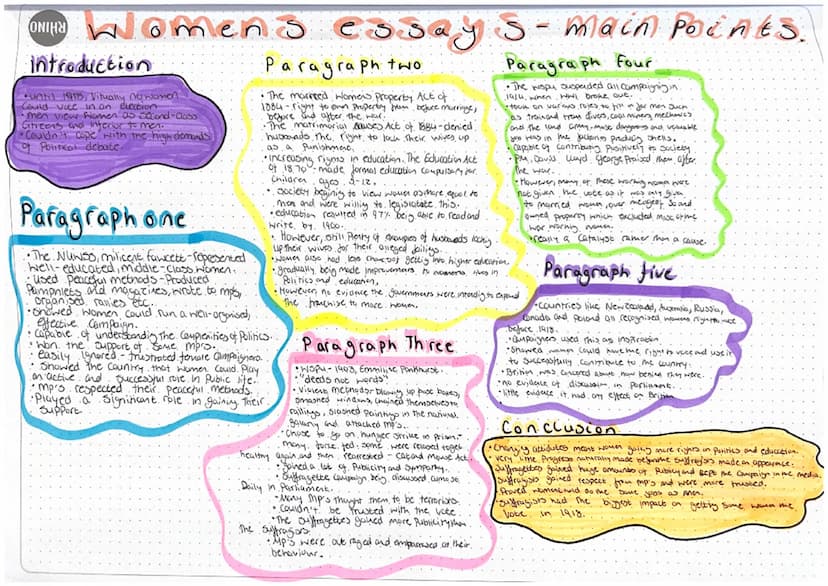 RHINO
Womens essays - main Points.
Introduction
• until 1918, virtually no women
could vote in an election
• men view women as second-class
citizens and inferior to men.
• Couldn't cope with the high demands
of Political debate
Paragraph one
• The NUWSS, milicent fawcett - represented
well-educated, middle-class women.
• used peaceful methods - Produced
Pamphlets and magazines, wrote to mps,
organised rallies etc.
• showed women could run a well-organised,
effective campaign.
• capable of understanding the complexities of Politics.
• Won the support of some MP's.
• easily ignored - frustrated female campaigners.
• Showed the country that women could Play
an active and successful role in Public life.
• MP's respected their peaceful methods.
• Played a significant role in gaining their
support.
Paragraph two
• The married Womens Property Act of
1884 - right to own property from before marriage,
before and after the war.
• The matrimonial causes Act of 1884 - denied
husbands the right to lock their wives up
as a Punishment.
• increasing rights in education. The Education Act
of 1870 - made formal education compulsory for
children ages 5-12.
• society beginning to view women as more equal to
men and were willing to legislate this.
• education resulted in 97% being able to read and
write by 1900.
• However, still Plenty of examples of husbands locking
up their wives for their alleged failings.
• women also had less chance of getting into higher education.
• gradually being made improvements to womens lives in
Politics and education.
• However no evidence the governments were intending to expand
the franchise to more women.
Paragraph Three
• WSPU - 1903, Emmiline Pankhurst.
• "deeds not words"
• Violent methods - blowing up post boxes,
smashed windows, chained themselves to
railings, slashed Paintings in the national
gallery and attacked mp's.
• Chose to go on hunger strike in prison -
many force fed. some were released to get
healthy again and then rearrested - cat and mouse Act.
• gained a lot of Publicity and sympathy.
• Suffragette campaign being discussed almost
Daily in Parliament.
• Many MP's thought them to be terrorists.
• Couldn't be trusted with the vote.
• The suffragettes gained more Publicity than
the suffragists
• MP's were outraged and empowered at their
behaviour.
Paragraph Four
• The WSPU suspended all campaigning in
1914, when WW1 broke out.
• took on various roles to fill in for men such
as train and tram drivers, coal miners, mechanics
and the land army. most dangerous and valuable
job was in the factories producing shells.
• Capable of contributing positively to society
• PM, David Lloyd George Praised them after
the war.
• However, many of these working women were
not given the vote as it was only given
to married women, over the age of 30 and
owned property which excluded most of the
war working women.
• really a catalyst rather than a cause.
Paragraph five
• Countries like New Zealand, Australia, Russia,
Canada and Poland all recognised womens right to vote
before 1918.
• Campaigners used this as inspiration
• Showed women could have the right to vote and use it
to successfully contribute to the country.
• Britain was concerned about how behind they were.
• no evidence of discussion in Parliament.
• little evidence it had an effect on Britain
Conclusion
• Changing attitudes meant women gaining more rights in Politics and education.
• very little Progress naturally made before the suffragists made an appearance.
• Suffragettes gained huge amounts of Publicity and kept the campaign in the media.
• Suffragists gained respect from MP's and were more trusted.
• Proved women could do the same jobs as men.
• Suffragists had the biggest impact on getting some women the
vote in 1918.